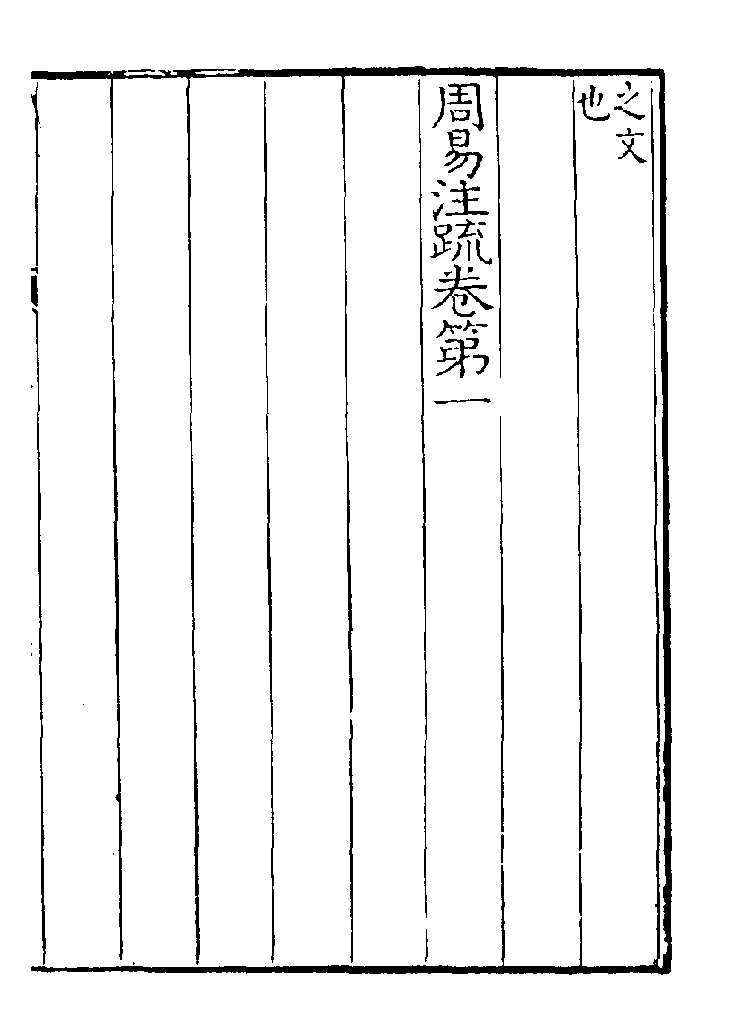 之文
也
周易注疏卷第一